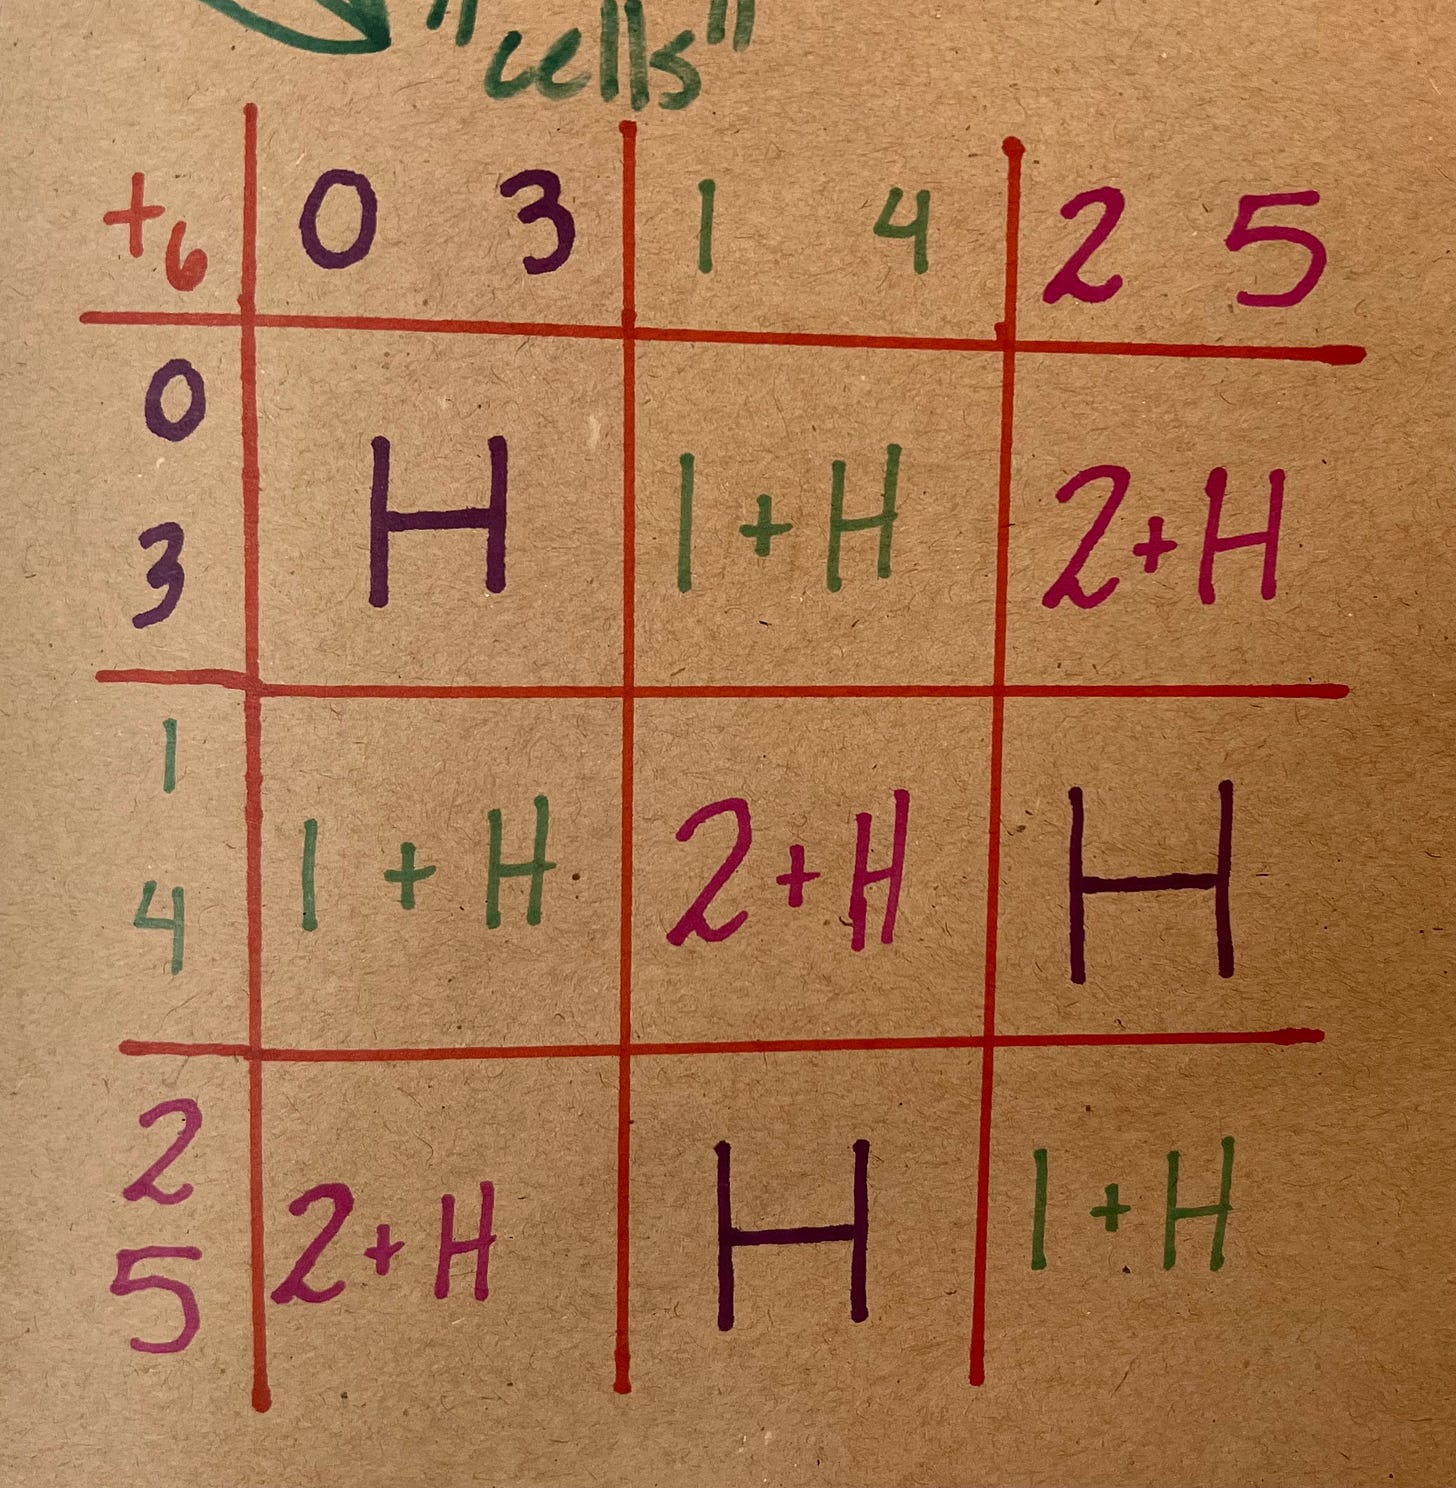 "cells"
+6 0 3 1 4 2 5
0
H 1+H 2+H
3
1
1+H 2+H H
4
2
2+H H 1+H
5